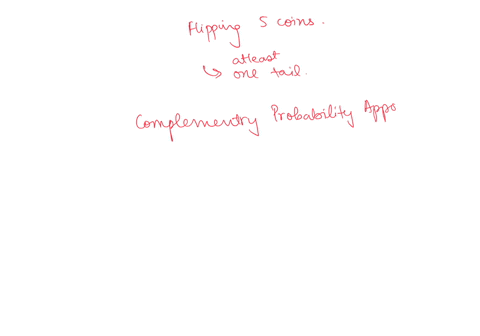 Flipping 5 coins.
atleast
one tail.
Complementry Probability Appo